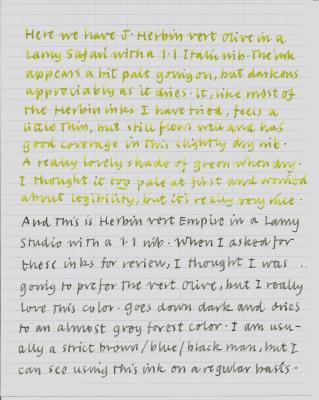 Here we have J. Herbin Vert Olive in a
Lamy Safari with a 1.1 Italic nib. The ink
appears a bit pale going on, but darkens
appreciably as it dries. It, like most of
the Herbin inks I have tried, feels a
little thin, but still flows well and has
good coverage in this slightly dry nib.
A really lovely shade of green when dry.
I thought it too pale at first and worried
about legibility, but it's really very nice.
And this is Herbin Vert Empire in a Lamy
Studio with a 1.1 nib. When I asked for
these inks for review, I thought I was
going to prefer the Vert Olive, but I really
love this color. Goes down dark and dries
to an almost gray forest color. I am usu-
ally a strict brown/blue/black man, but I
can see using this ink on a regular basis.